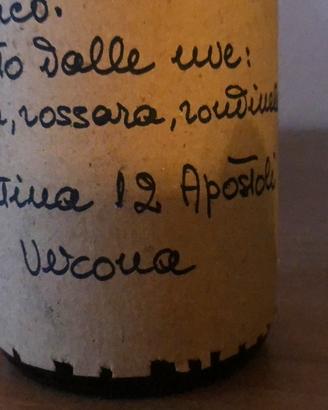 co.
to dalle uve:
, rossara, rondine
tina 12 Apostoli
Verona